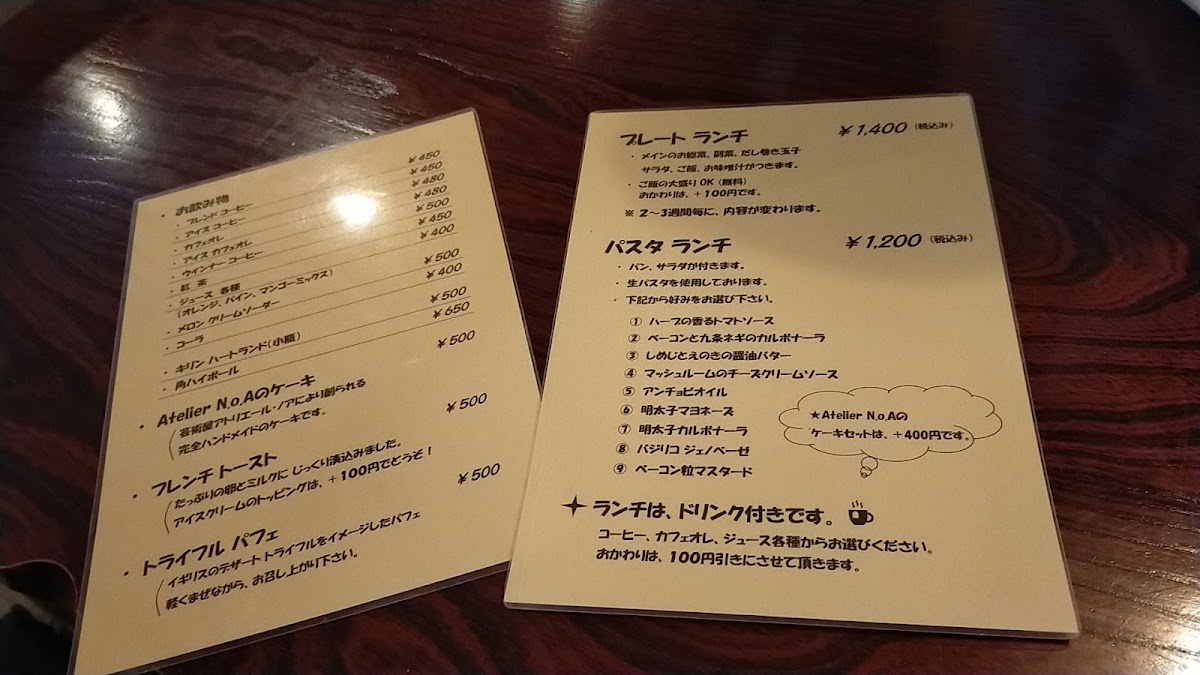 ・お飲み物
・ブレンド コーヒー ￥450
・アイス コーヒー ￥450
・カフェオレ ￥480
・アイス カフェオレ ￥480
・ウインナー コーヒー ￥500
・紅 茶 ￥450
・ジュース 各種 ￥400
(オレンジ、パイン、マンゴーミックス)
・メロン クリームソーダー ￥500
・コーラ ￥400
・キリン ハートランド(小瓶) ￥500
・角ハイボール ￥650
・Atelier N.o.Aのケーキ ￥500
芸術屋アトリエール・ノアにより創られる
完全ハンドメイドのケーキです。
・フレンチ トースト ￥500
たっぷりの卵とミルクに じっくり漬込みました。
アイスクリームのトッピングは、＋100円でどうぞ！
・トライフル パフェ ￥500
イギリスのデザート トライフルをイメージしたパフェ
軽くまぜながら、お召し上がり下さい。
プレート ランチ ￥1,400（税込み）
・メインのお惣菜、副菜、だし巻き玉子
サラダ、ご飯、お味噌汁がつきます。
・ご飯の大盛り OK（無料）
おかわりは、＋100円です。
※ 2～3週間毎に、内容が変わります。
パスタ ランチ ￥1,200（税込み）
・パン、サラダが付きます。
・生パスタを使用しております。
・下記から好みをお選び下さい。
① ハーブの香るトマトソース
② ベーコンと九条ネギのカルボナーラ
③ しめじとえのきの醤油バター
④ マッシュルームのチーズクリームソース
⑤ アンチョビオイル
⑥ 明太子マヨネーズ
⑦ 明太子カルボナーラ
⑧ バジリコ ジェノベーゼ
⑨ ベーコン粒マスタード
★Atelier N.o.Aの
ケーキセットは、＋400円です。
ランチは、ドリンク付きです。
コーヒー、カフェオレ、ジュース各種からお選びください。
おかわりは、100円引きにさせて頂きます。